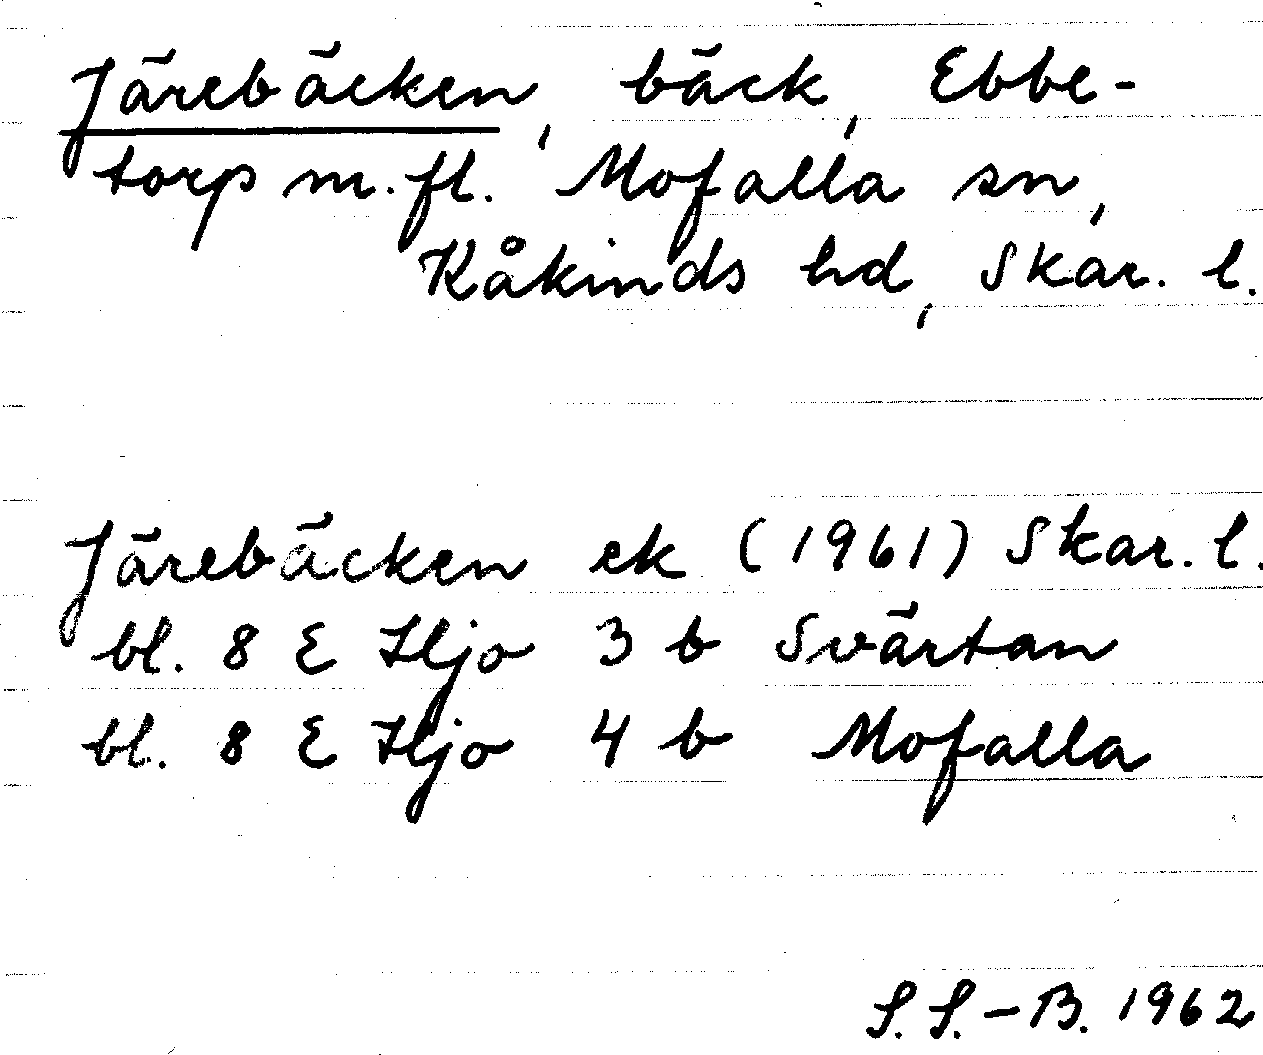 Järebäcken, bäck, Ebbe-
torp m.fl. Mofalla sn,
Kåkinds hd, Skar. l.
Järebäcken ek (1961) Skar. l.
bl. 8 E Hjo 3 b Svärtan
bl. 8 E Hjo 4 b Mofalla
S.S.-B. 1962